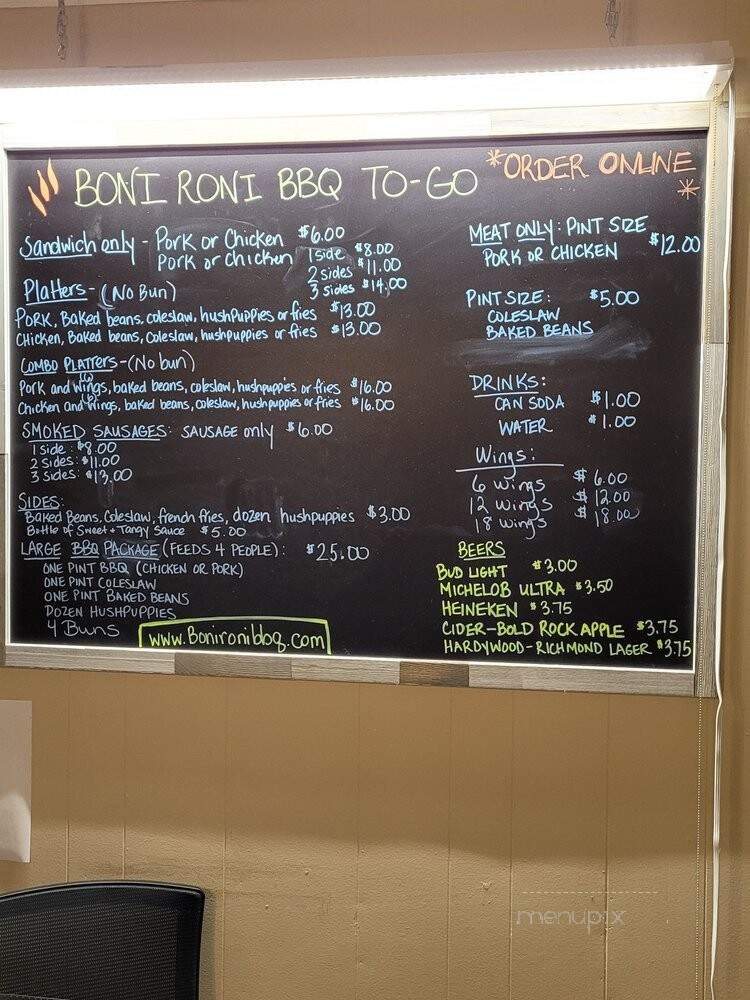 BONI RONI BBQ TO-GO
*ORDER ONLINE*
Sandwich only - Pork or Chicken $6.00
Pork or chicken 1 side $8.00
2 sides $11.00
3 sides $14.00
Platters - (No Bun)
PORK, Baked beans, coleslaw, hushpuppies or fries $13.00
CHicken, Baked beans, Coleslaw, hushpuppies or fries $13.00
COMBO PLATTERS - (No bun)
Pork and (6) wings, baked beans, coleslaw, hushpuppies or fries $16.00
Chicken and (6) wings, baked beans, coleslaw, hushpuppies or fries $16.00
SMOKED SAUSAGES: SAUSAGE only $6.00
1 side: $8.00
2 sides: $11.00
3 sides: $13.00
SIDES:
Baked Beans, Coleslaw, french fries, dozen hushpuppies $3.00
Bottle of Sweet + Tangy Sauce $5.00
LARGE BBQ PACKAGE (FEEDS 4 PEOPLE): $25.00
ONE PINT BBQ (CHICKEN OR PORK)
ONE PINT COLESLAW
ONE PINT BAKED BEANS
DOZEN HUSHPUPPIES
4 Buns
www.Bonironibbq.com
MEAT ONLY: PINT SIZE
PORK OR CHICKEN $12.00
PINT SIZE: $5.00
COLESLAW
BAKED BEANS
DRINKS:
CAN SODA $1.00
WATER $1.00
Wings:
6 wings $6.00
12 wings $12.00
18 wings $18.00
BEERS
BUD LIGHT $3.00
MICHELOB ULTRA $3.50
HEINEKEN $3.75
CIDER-BOLD ROCK APPLE $3.75
HARDYWOOD-RICHMOND LAGER $3.75
menupix